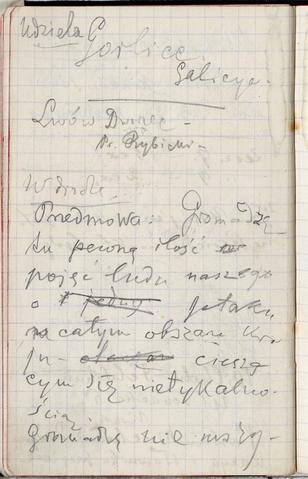 Udziela Gorlice
Galicya.
Lwów Dworzec –
Pr. Rybicki –
W drodze.
Przedmowa: Gromadzę
tu pewną ilość
pojęć ludu naszego
o jednej ptaku,
na całym obszarze kra
ju – cieszą
cym się nietykalno-
ścią.
Gromadkę nie